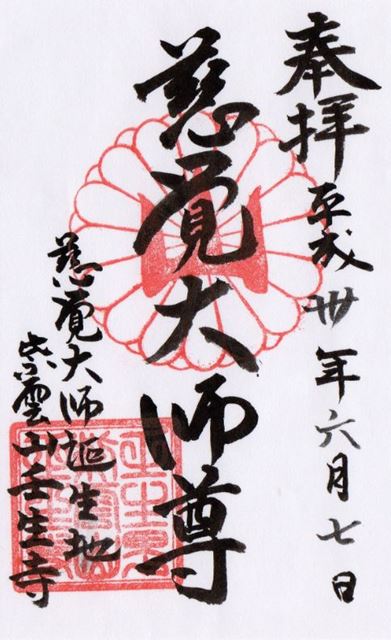 奉拝
平成卅年六月七日
慈覺大師尊
慈覺大師誕生地
紫雲山壬生寺